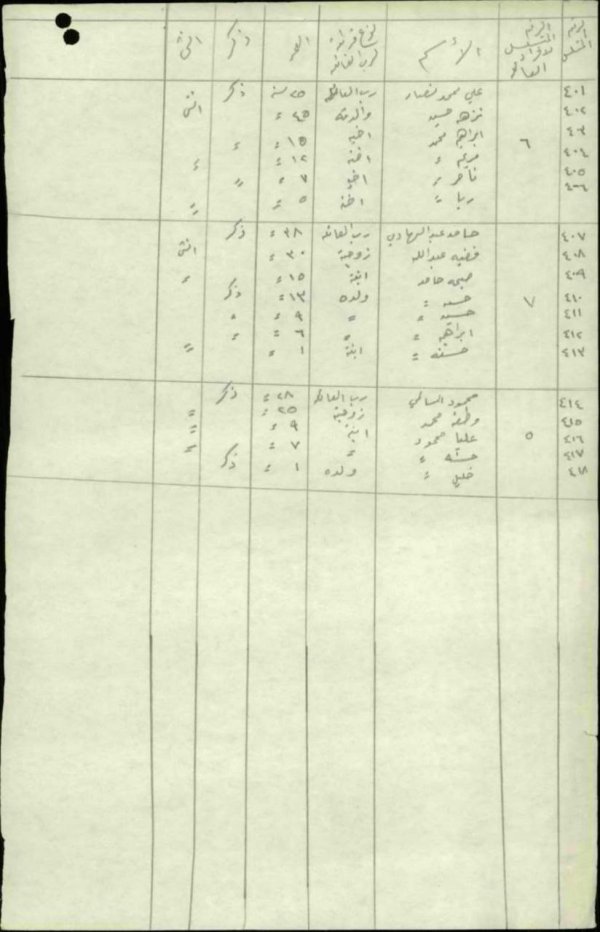 الرقم المتسلسل الرقم المتسلسل لافراد العائلة الأسم نوع قرابته لرب العائلة العمر ذكر انثى
٤٠١ علي محمد رب العائلة ٢٥ سنة ذكر
٤٠٢ نزهه حسين والدته ٤٥ = انثى
٤٠٣ ابراهيم محمد اخيه ١٥ = =
٤٠٤ ٦ مريم = اخته ١٢ = =
٤٠٥ ناصر = اخيه ٧ = =
٤٠٦ ريا = اخته ٥ = =
٤٠٧ حامد عبد الهادي رب العائلة ٣٨ = ذكر
٤٠٨ فضيه عبدالله زوجته ٣٠ = انثى
٤٠٩ صبحه حامد ابنته ١٥ = =
٤١٠ ٧ حسن = ولده ١٣ = ذكر
٤١١ حسين = = ٩ = =
٤١٢ ابراهيم = = ٦ = =
٤١٣ حسنه = ابنته ١ = =
٤١٤ محمود السالم رب العائلة ٢٨ = ذكر
٤١٥ وطفه محمد زوجته ٢٥ = =
٤١٦ ٥ عليا محمود ابنته ٩ = =
٤١٧ = = ٧ = =
٤١٨ خليل = ولده ١ = ذكر